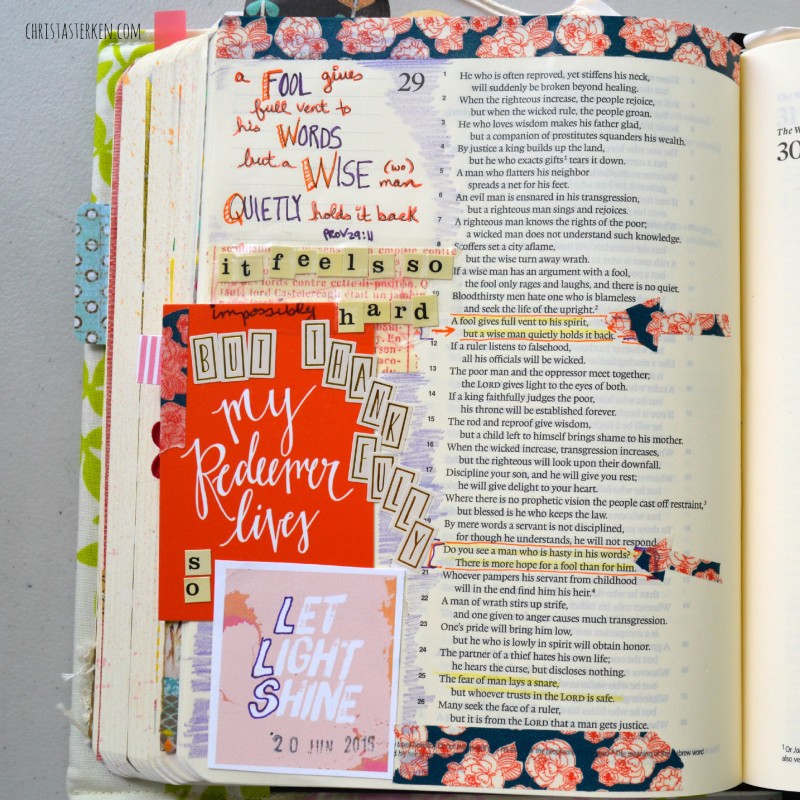 CHRISTASTERKEN.COM
a FOOL gives
full vent to
his WORDS
but a WISE (wo)
man
QUIETLY holds it back
PROV 29:11
it feels so
impossibly hard
BUT THANKFULLY
my
Redeemer
lives
so
LET
LIGHT
SHINE
20 JUN 2015
29
1 He who is often reproved, yet stiffens his neck,
will suddenly be broken beyond healing.
2 When the righteous increase, the people rejoice,
but when the wicked rule, the people groan.
3 He who loves wisdom makes his father glad,
but a companion of prostitutes squanders his wealth.
4 By justice a king builds up the land,
but he who exacts gifts¹ tears it down.
5 A man who flatters his neighbor
spreads a net for his feet.
6 An evil man is ensnared in his transgression,
but a righteous man sings and rejoices.
7 A righteous man knows the rights of the poor;
a wicked man does not understand such knowledge.
8 Scoffers set a city aflame,
but the wise turn away wrath.
If a wise man has an argument with a fool,
the fool only rages and laughs, and there is no quiet.
Bloodthirsty men hate one who is blameless
and seek the life of the upright.²
A fool gives full vent to his spirit,
but a wise man quietly holds it back.
12 If a ruler listens to falsehood,
all his officials will be wicked.
13 The poor man and the oppressor meet together;
the LORD gives light to the eyes of both.
14 If a king faithfully judges the poor,
his throne will be established forever.
15 The rod and reproof give wisdom,
but a child left to himself brings shame to his mother.
16 When the wicked increase, transgression increases,
but the righteous will look upon their downfall.
17 Discipline your son, and he will give you rest;
he will give delight to your heart.
18 Where there is no prophetic vision the people cast off restraint,³
but blessed is he who keeps the law.
19 By mere words a servant is not disciplined,
for though he understands, he will not respond.
Do you see a man who is hasty in his words?
There is more hope for a fool than for him.
21 Whoever pampers his servant from childhood
will in the end find him his heir.⁴
22 A man of wrath stirs up strife,
and one given to anger causes much transgression.
23 One's pride will bring him low,
but he who is lowly in spirit will obtain honor.
24 The partner of a thief hates his own life;
he hears the curse, but discloses nothing.
25 The fear of man lays a snare,
but whoever trusts in the LORD is safe.
26 Many seek the face of a ruler,
but it is from the LORD that a man gets justice.
30